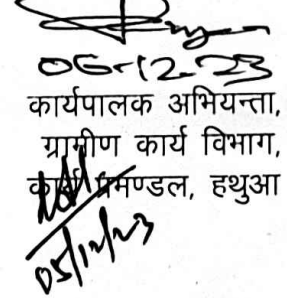 06-12-23
कार्यपालक अभियन्ता,
ग्रामीण कार्य विभाग,
कार्य प्रमण्डल, हथुआ
05/12/23